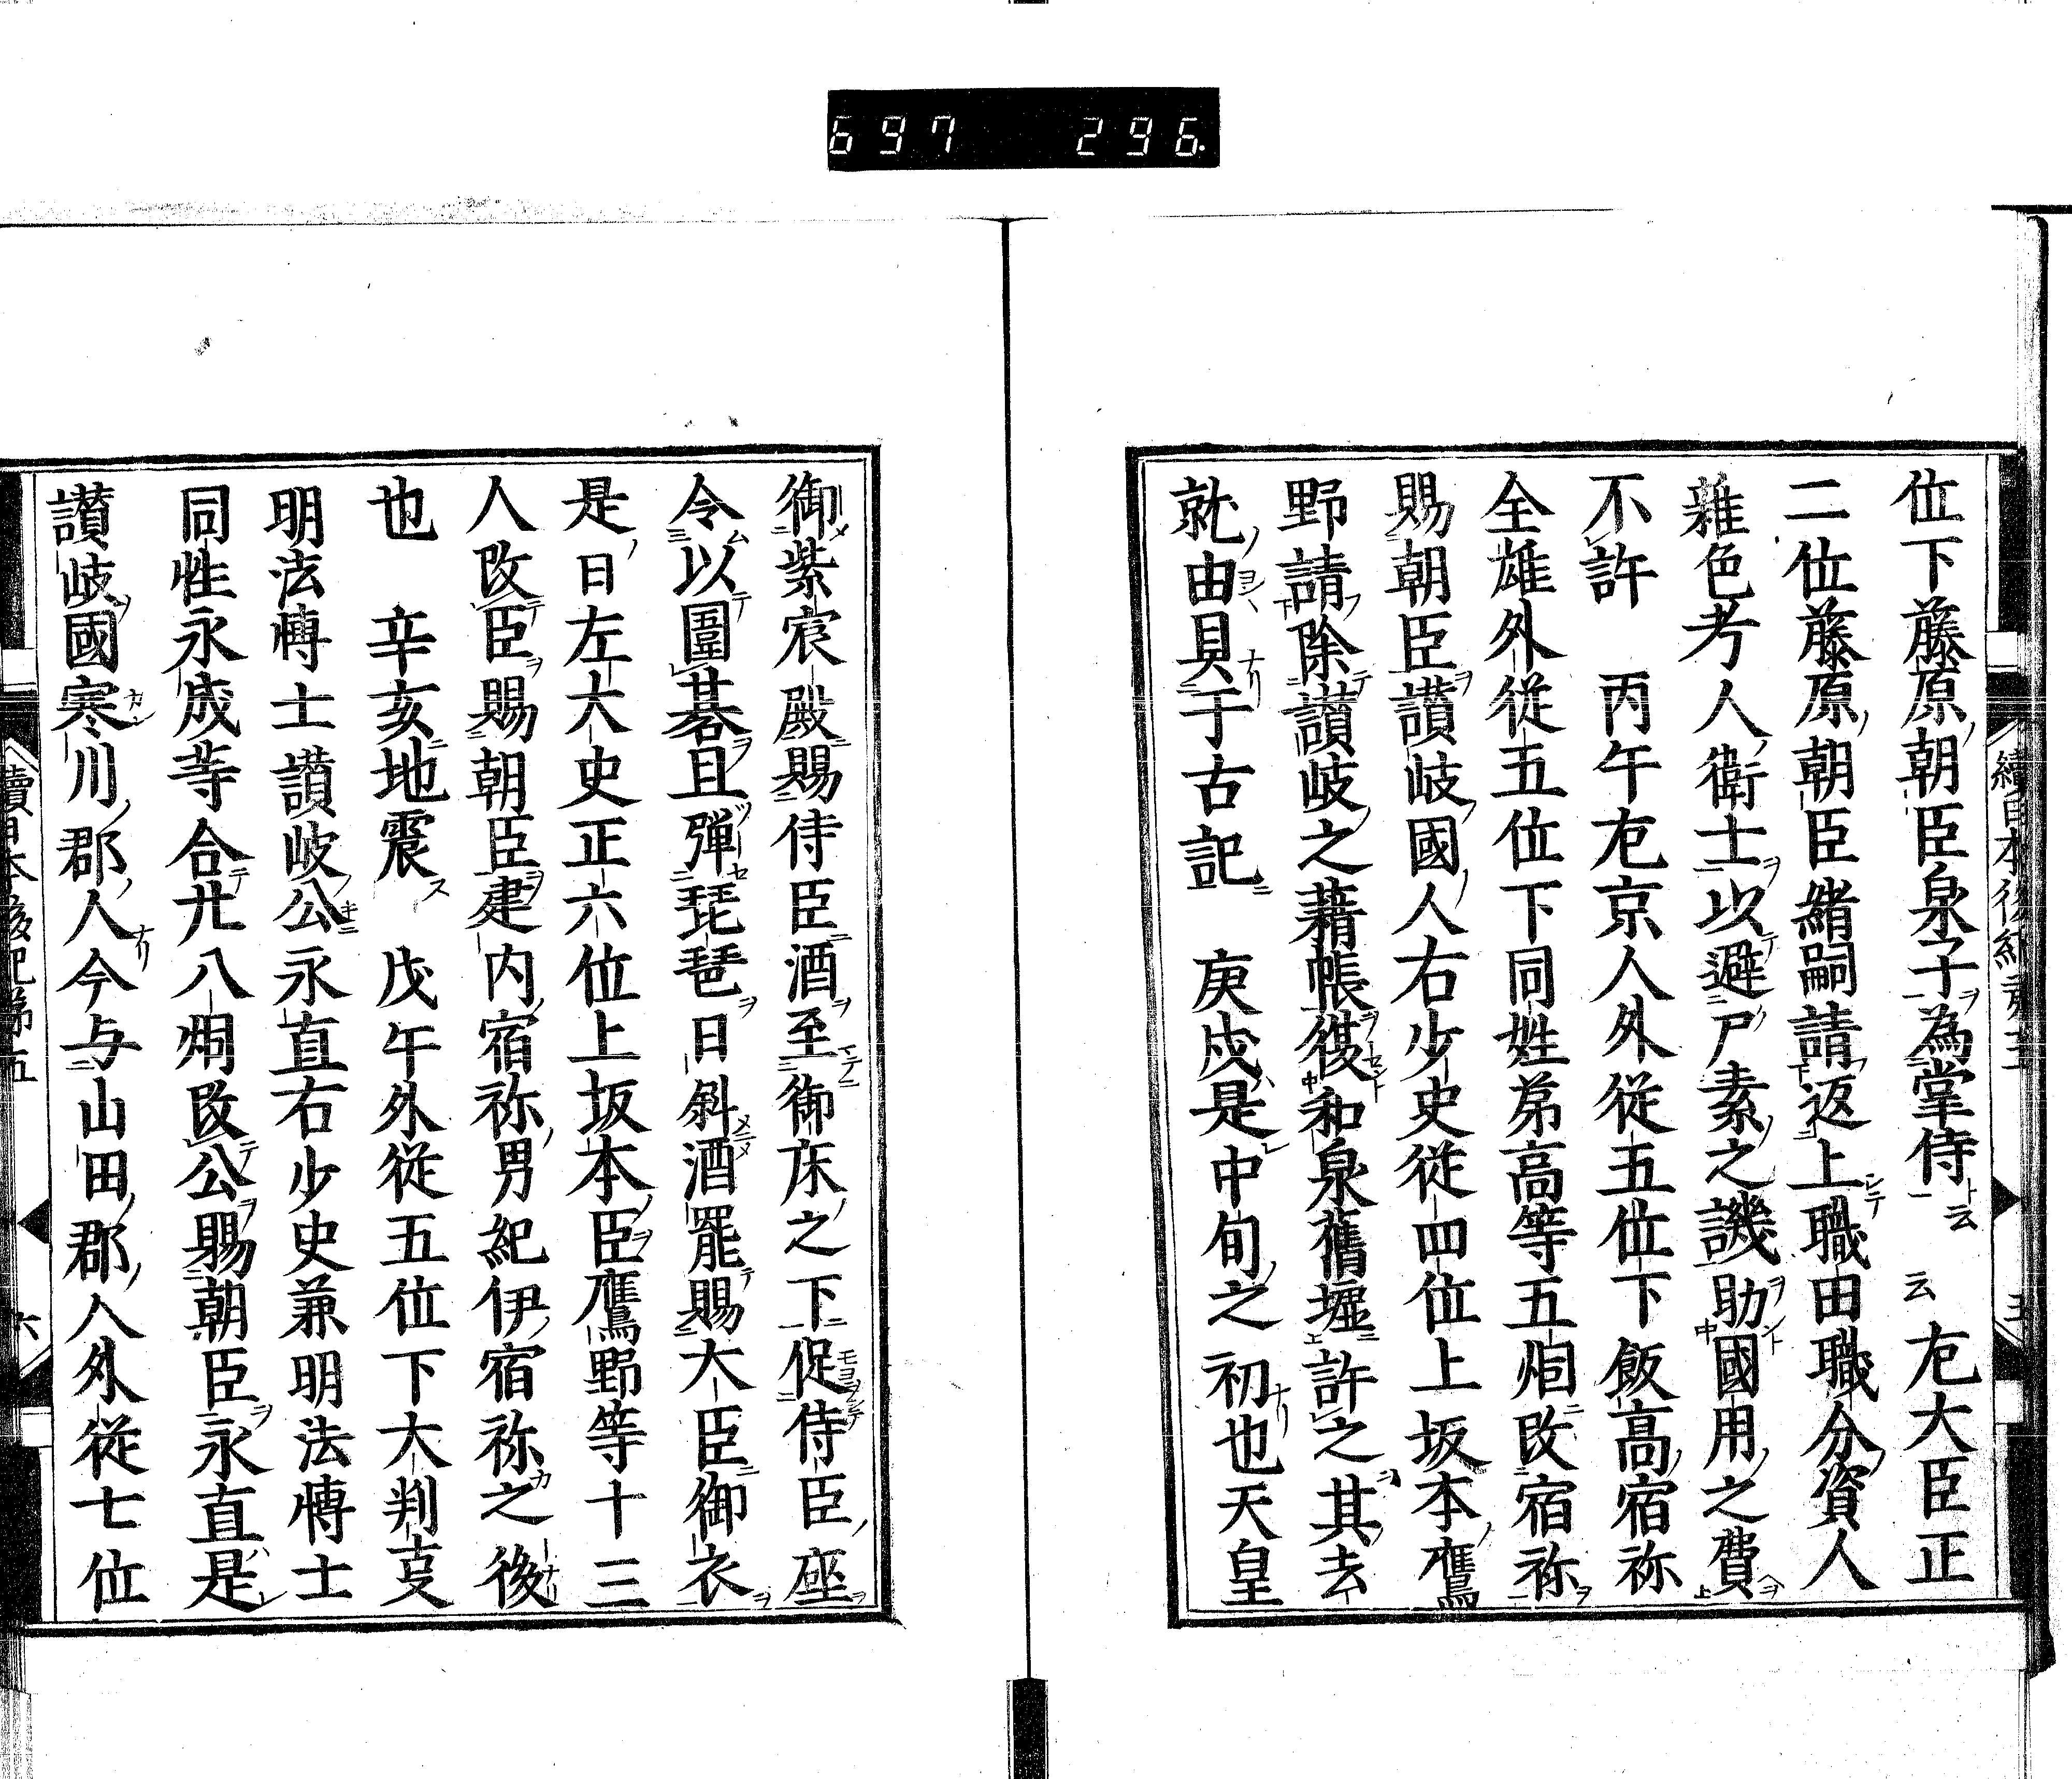 697 296.
位下藤原朝臣泉子為掌侍 云 左大臣正
二位藤原朝臣緒嗣請返上職田職分資人
雜色考人衛士以避尸素之譏助國用之費
不許 丙午右京人外從五位下飯高宿祢
全雄外從五位下同姓苐高等五烟改宿祢
賜朝臣讃岐國人右少史從四位上坂本鷹
野請除讃岐之藉帳復和泉舊墟許之其去
就由具于古記 庚戌是中旬之初也天皇
御紫宸殿賜侍臣酒至御床之下促侍臣座
令以圍碁且彈琵琶日斜酒罷賜大臣御衣
是日左大史正六位上坂本臣鷹野等十三
人改臣賜朝臣建内宿祢男紀伊宿祢之後
也 辛亥地震 戊午外從五位下大判事
明法博士讃岐公永直右少史兼明法博士
同性永成等合廿八烟改公賜朝臣永直是
讃岐國寒川郡人今与山田郡人外從七位
續日本後紀第五
六